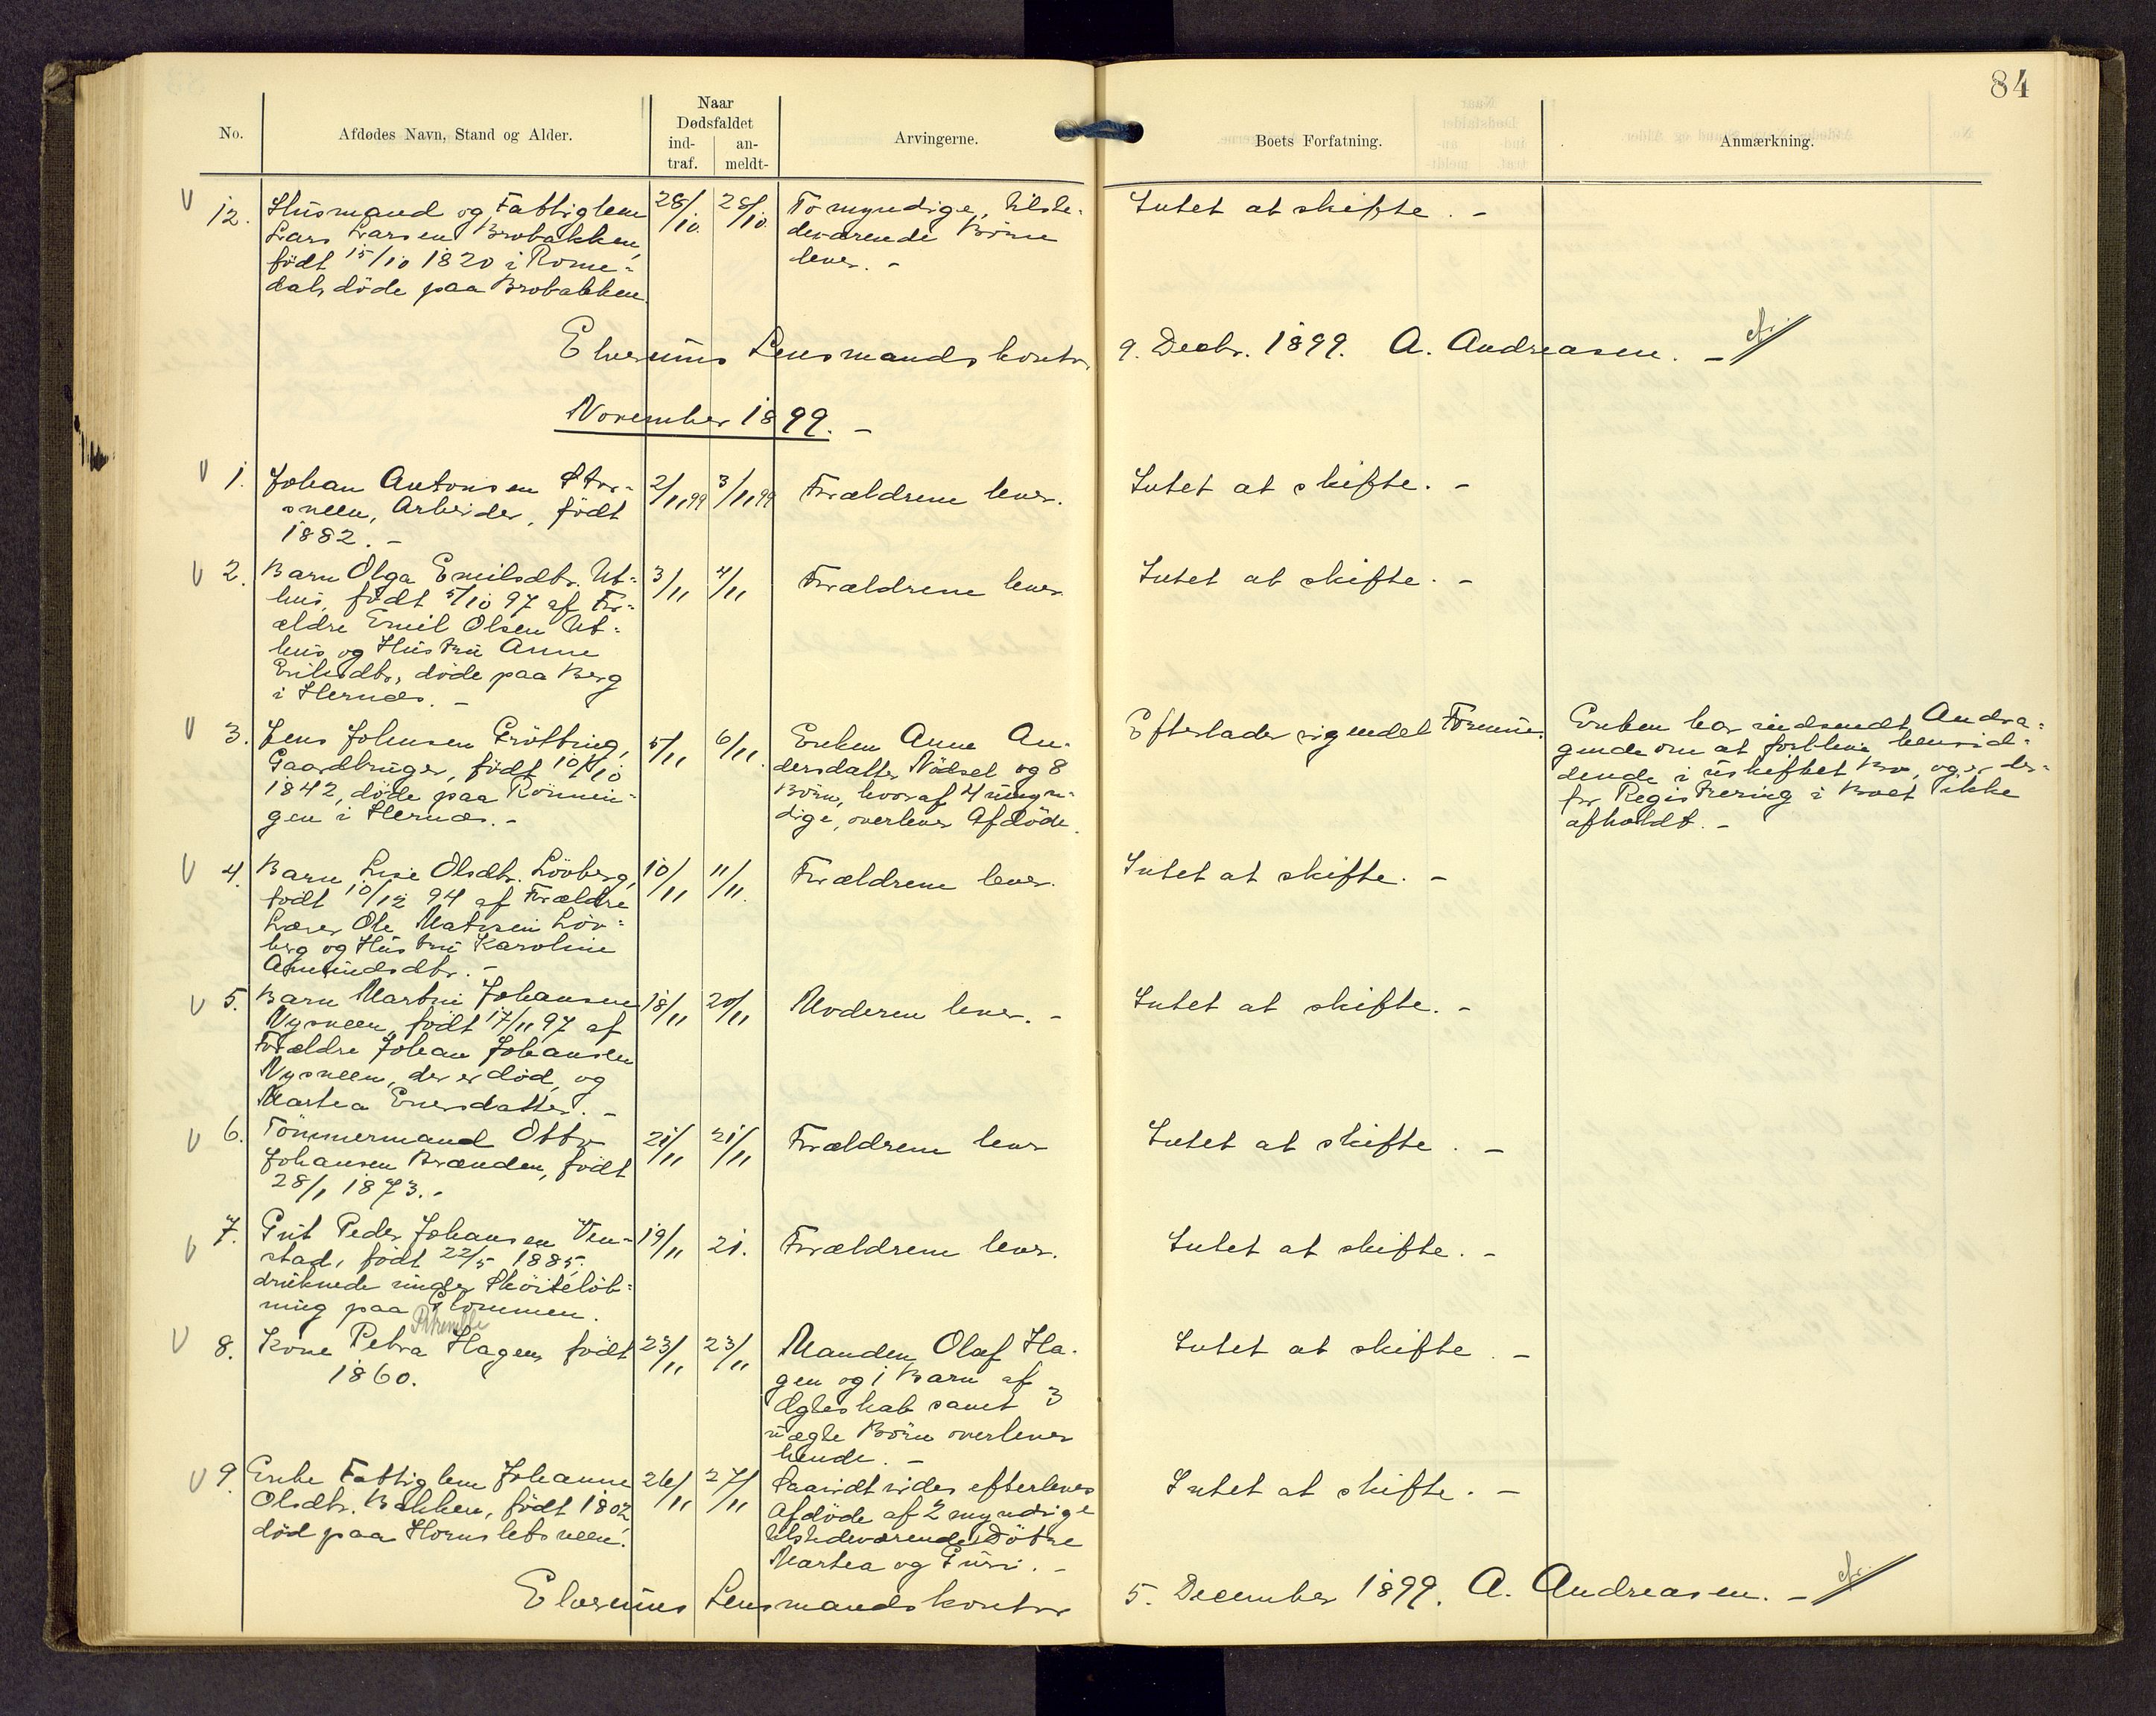 84
No.
Afdødes Navn, Stand og Alder.
Naar
Dødsfaldet
ind-
traf.
an-
meldt-
Arvingerne.
Boets Forfatning.
Anmærkning.
12.
Husmand og Fattiglem
Lars Larsen Brobakken,
födt 15/10 1820 i Rome-
dal, döde paa Brobakken.
28/10.
28/10.
To myndige, tilste-
deværende Börn
lever. -
Intet at skifte. -
Elverums Lensmandskontor
9. Decbr. 1899. A. Andreasen. -
November 1899. -
1.
Johan Antonsen Stor-
sveen, Arbeider, födt
1882. -
2/11 99
3/11 99
Forældrene lever.
Intet at skifte. -
2.
Barn Olga Emilsdtr. Ut-
hus, födt 5/10 97 af For-
ældre Emil Olsen Ut-
hus og Hustru Anne
Eriksdtr, döde paa Berg
i Hernæs. -
3/11
4/11
Forældrene lever
Intet at skifte. -
3.
Jens Johnsen Grötting,
Gaardbruger, födt 10/10
1842, döde paa Rönnin-
gen i Hernæs. -
5/11
6/11.
Enken Anne An-
dersdatter Nödset og 8
Börn, hvoraf 4 umyn-
dige, overlever Afdöde.
Efterlader sig endel Formue.
Enken har indsendt Andra-
gende om at forblive hensid-
dende i uskiftet Bo, og er der-
for Registrering i Boet ikke
afholdt. -
4.
Barn Lise Olsdtr. Lövberg,
födt 10/12 94 af Forældre
Lærer Ole Matisen Löv-
berg og Hustru Karoline
Amundsdtr. -
10/11
11/11.
Forældrene lever.
Intet at skifte. -
5.
Barn Martin Johansen
Nysveen, födt 17/11 97 af
Forældre Johan Johansen
Nysveen, der er död, og
Martea Enersdatter. -
18/11
20/11
Moderen lever. -
Intet at skifte. -
6.
Tömmermand Otto
Johansen Brænden, födt
28/1 1873. -
21/11
21/11
Forældrene lever
Intet at skifte. -
7.
Gut Peder Johansen Ven-
stad, födt 22/5 1885.
druknede under Sköitelöb-
ning paa Glommen.
19/11
21.
Forældrene lever.
Intet at skifte. -
8.
Kone Petra Hagen, födt
1860.
23/11
23/11
Manden Olaf Ha-
gen og 1 Barn af
Ægteskab samt 3
uægte Börn overlever
hende. -
Intet at skifte. -
9.
Enke Fattiglem Johanne
Olsdtr. Bakken, födt 1802,
död paa Hornsletsveen.
26/11
27/11
Saavidt vides efterleves
Afdöde af 2 myndige
tilstedeværende Dötre
Martea og Guri. -
Intet at skifte. -
Elverums Lensmandskontor
5. December 1899. A. Andreasen. -